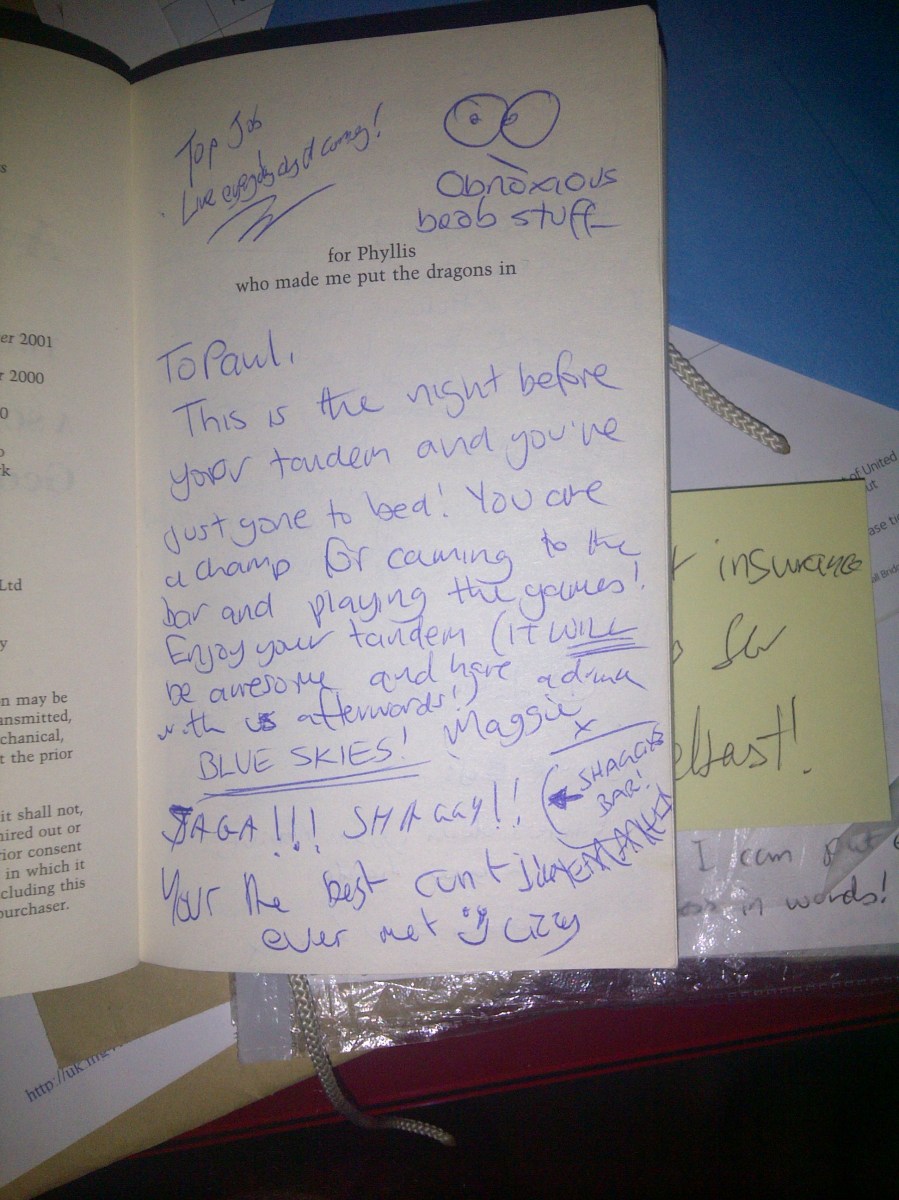 Top Job
Live everyday as it coming!
Obnoxious
boob stuff
for Phyllis
who made me put the dragons in
To Paul,
This is the night before
your tandem and you've
just gone to bed! You are
a champ for coming to the
bar and playing the games!
Enjoy your tandem (IT WILL
be awesome and have a drink
with us afterwards!)
BLUE SKIES! Maggie
x
SAGA!!! SHAGGY!! (← SHAGGYS
BAR!
Your the best cunt
ever met Lizzy
er 2001
r 2000
0
k
Ltd
y
n may be
ansmitted,
chanical,
t the prior
it shall not,
hired out or
ior consent
in which it
cluding this
purchaser.
of United
ut
ase tic
insurance
elfast!
I can put
in words!
http://uk.